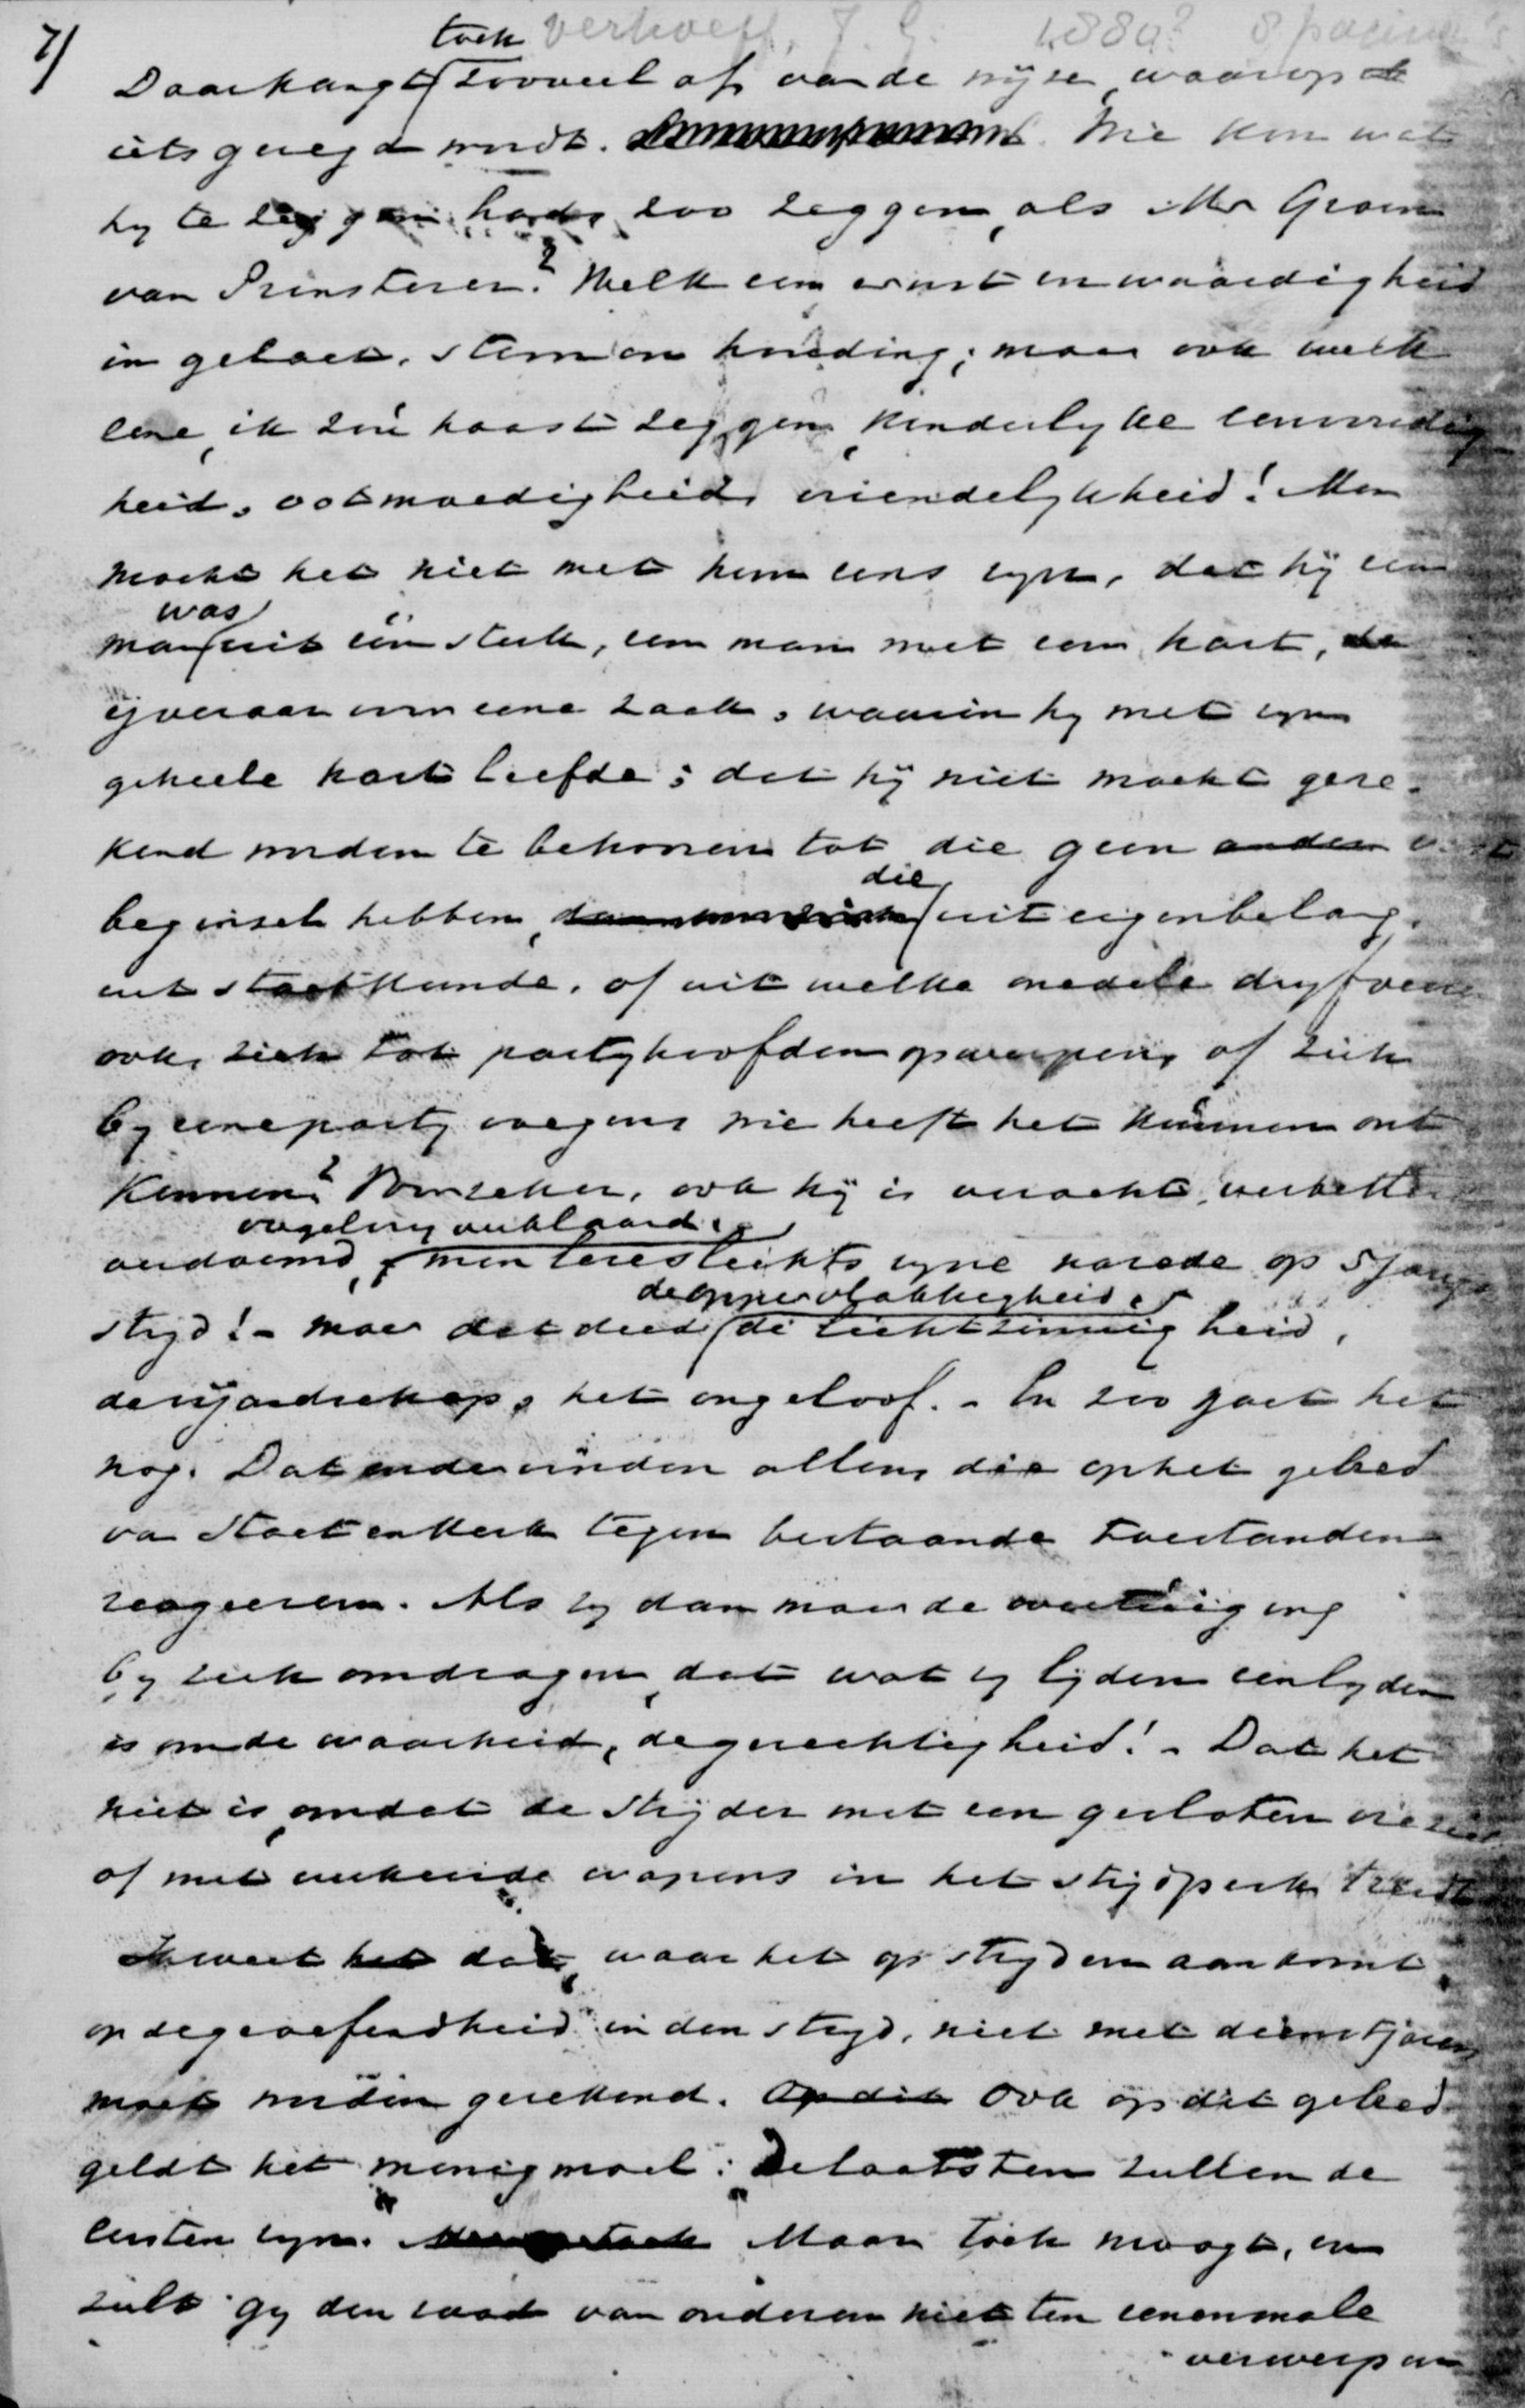 7/
toch Verhoeff, J. G. 1889? 8 pagina's
Daar hangt zooveel af van de wijze, waarop
iets gezegd wordt. Wie kon wat
hy te zeggen had, zoo zeggen, als Mr Groen
van Prinsterer? Welk een ernst en waardigheid
in gelaat, stem en houding; maar ook welk
eene, ik zou haast zeggen, kinderlyke eenvoudig
heid, ootmoedigheid, vriendelykheid! Men
mocht het niet met hem eens zyn, dat hij een
was
man uit één stuk, een man met een hart,
ijveraar voor eene zaak, waarin hy met zyn
geheele hart leefde; dat hij niet mocht gere-
kend worden te behooren tot die geen ander
die
beginsel hebben, uit eigenbelang,
uit staatkunde, of uit welke onedele dryfveer
ook, zich tot partyhoofden opwerpen, of zich
by eene party voegen, wie heeft het kunnen ont
kennen? Voorzeker, ook hij is veracht, verketterd
vogelvry verklaard.
verdoemd, men leze slechts zyne narede op 5jarige
de oppervlakkigheid,
stryd! - maar dat deed de lichtzinnigheid,
de vijandschap, het ongeloof. - En zoo gaat het
nog. Dat ondervinden allen, die op het gebied
van Staat en Kerk tegen bestaande toestanden
reageeren. Als zy dan maar de overtuiging
by zich omdragen, dat wat zy lijden een lyden
is om de waarheid, de gerechtigheid! - Dat het
niet is, omdat de strijder met een gesloten vizier
of met verkeerde wapens in het strijdperk treedt
Ik weet het dat, waar het op stryden aankomt,
op de geoefendheid in den stryd, niet met dienstjaren
moet worden gerekend. Op dit Ook op dit gebied
geldt het menigmaal: De laatsten zullen de
eersten zyn. Maar toch moogt, en
zult gy den raad van anderen niet ten eenenmale
verwerpen